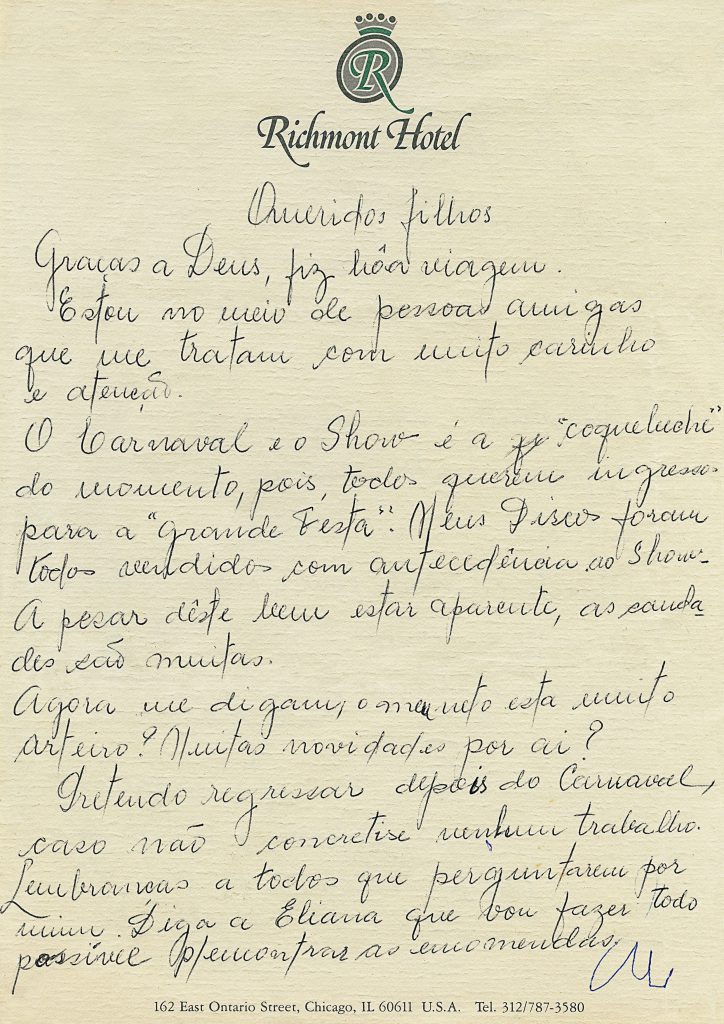 R
Richmont Hotel
Queridos filhos
Graças a Deus, fiz bôa viagem.
Estou no meio de pessoas amigas
que me tratam com muito carinho
e atenção.
O Carnaval e o Show é a "coqueluche"
do momento, pois, todos querem ingressos
para a "Grande Festa". Meus Discos foram
todos vendidos com antecedência ao Show.
A pesar dêste bem estar aparente, as sauda-
des são muitas.
Agora me digam, o meu neto esta muito
arteiro? Muitas novidades por ai?
Pretendo regressar depois do Carnaval,
caso não concretise nenhum trabalho.
Lembranças a todos que perguntarem por
mim. Diga a Eliana que vou fazer todo
possível p/encontrar as encomendas.
162 East Ontario Street, Chicago, IL 60611 U.S.A. Tel. 312/787-3580